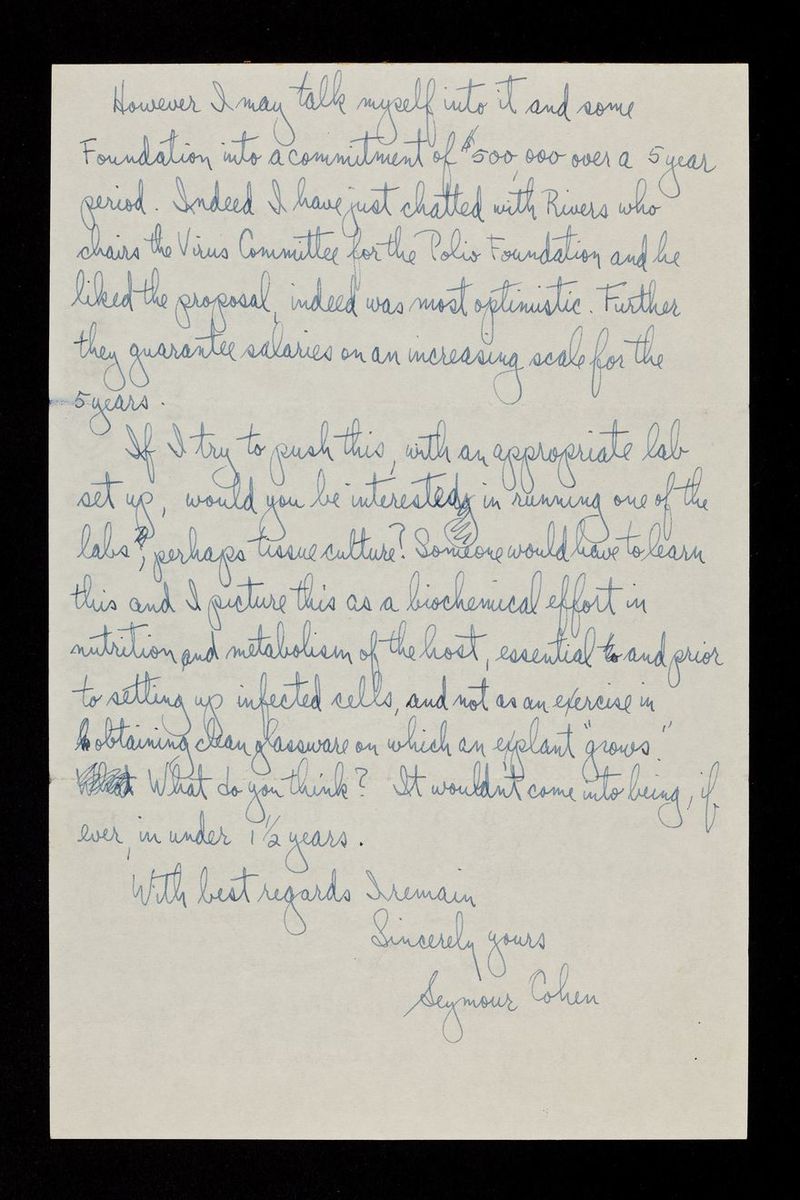 However I may talk myself into it and some
Foundation into a commitment of $500,000 over a 5 year
period. Indeed I have just chatted with Rivers who
chairs the Virus Committee for the Polio Foundation and he
liked the proposal, indeed was most optimistic. Further
they guarantee salaries on an increasing scale for the
5 years.
If I try to push this, with an appropriate lab
set up, would you be interested in running one of the
labs, perhaps tissue culture? Someone would have to learn
this and I picture this as a biochemical effort in
nutrition and metabolism of the host, essential to and prior
to setting up infected cells, and not as an exercise in
obtaining clean glassware on which an explant "grows."
What do you think? It wouldn't come into being, if
ever, in under 1 1/2 years.
With best regards I remain
Sincerely yours
Seymour Cohen